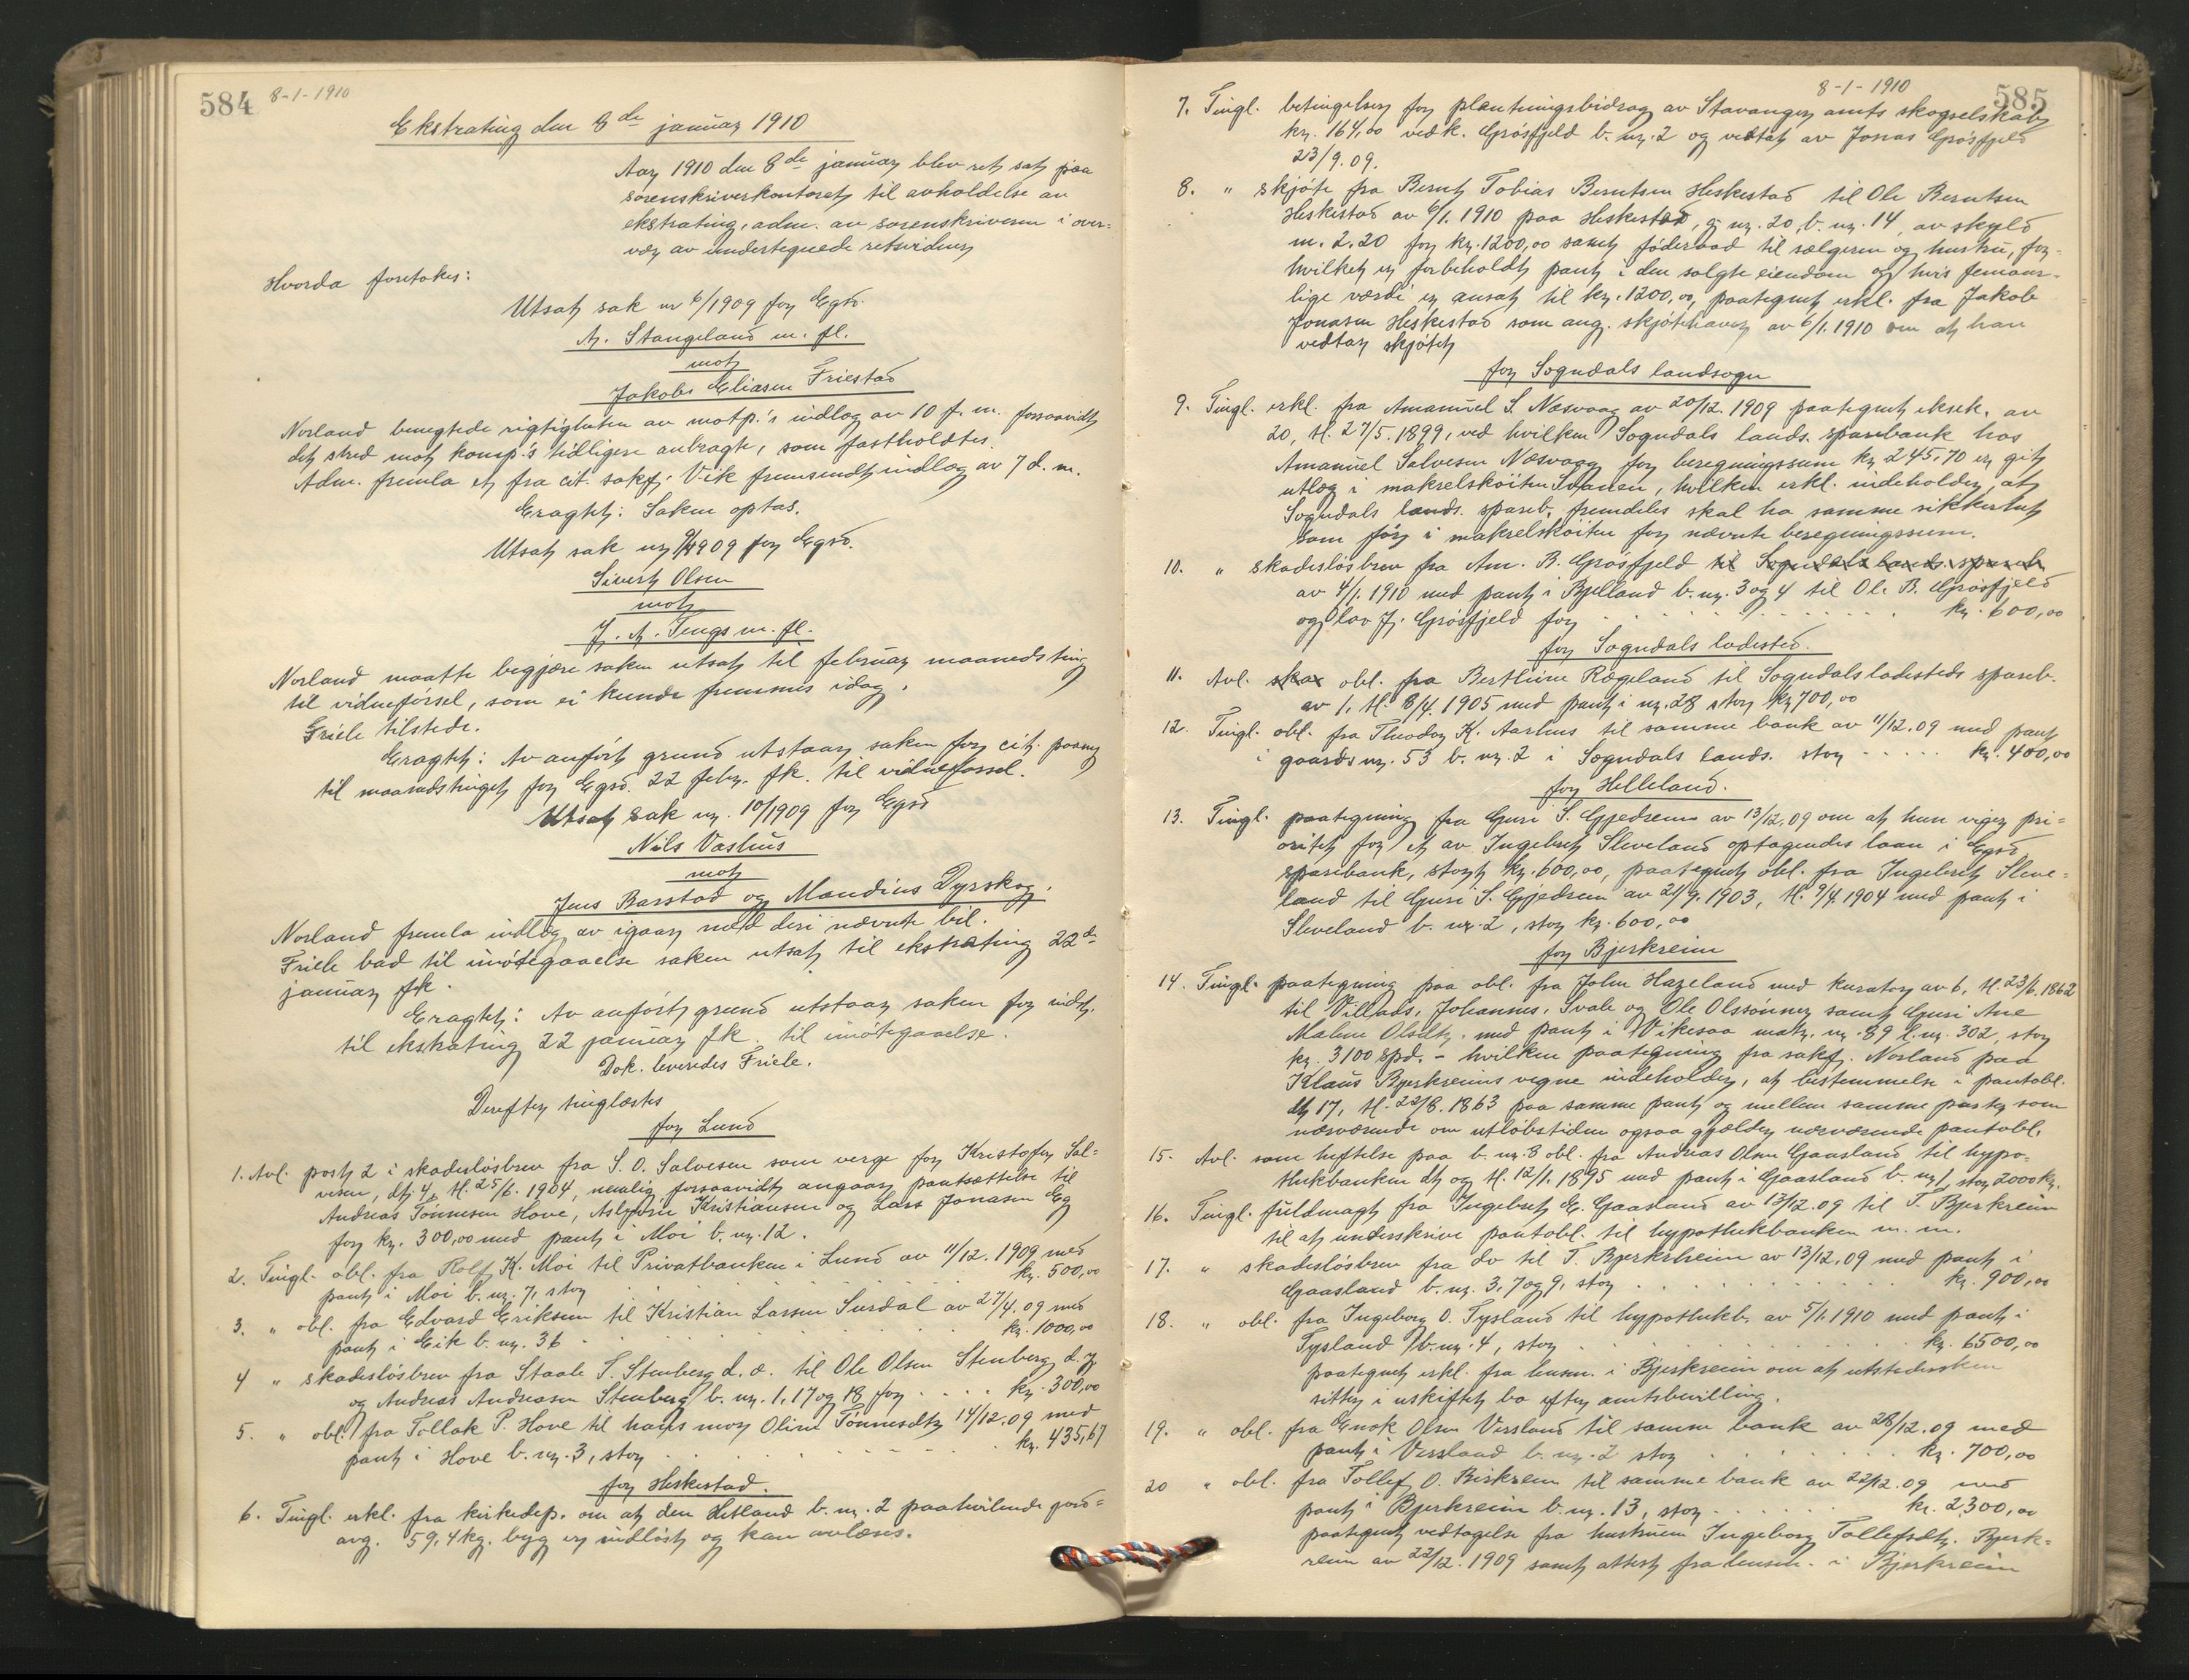 584 8-1-1910
Ekstrating den 8de januar 1910
Aar 1910 den 8de januar blev ret sat paa
sorenskriverkontoret til avholdelse av
ekstrating, adm. av sorenskriveren i over-
vær av undertegnede retsvidner
Hvorda foretokes:
Utsat sak nr 6/1909 for Egsd.
A. Stangeland m. fl.
mot
Jakob Eliasen Friestad
Norland benegtede rigtigheten av motp.'s indlæg av 10 f. m. forsaavidt
det stred mot konsp.'s tidligere anbragte, som fastholdtes.
Adm. fremla et fra cit. sakf. Vik fremsendt indlæg av 7 d. m.
Eragtet: Saken optas.
Utsat sak nr 9/1909 for Egsd.
Sivert Olsen
mot
J. A. Tengs m. fl.
Norland maatte begjære saken utsat til februar maanedsting
til vidneførsel, som ei kunde fremmes idag.
Friele tilstede.
Eragtet: Av anført grund utstaar saken for cit. paany
til maanedstinget for Egsd. 22 febr. fk. til vidneførsel.
Utsat sak nr. 10/1909 for Egsd
Nils Vashus
mot
Jens Barstad og Mandius Dyrskog.
Norland fremla indlæg av igaar med deri nævnte bil.
Friele bad til imøtegaaelse saken utsat til ekstrating 22de
januar fk.
Eragtet: Av anført grund utstaar saken for indst.
til ekstrating 22 januar fk. til imøtegaaelse.
Dok. leveredes Friele.
Derefter tinglæstes
for Lund
1. Avl. post 2 i skadesløsbrev fra S. O. Salvesen som verge for Kristofer Sal-
vesen, dt. 4, tl. 25/6. 1904, nemlig forsaavidt angaar pantsættelse til
Andreas Tønnesen Hove, Kristiansen og Lars Jonasen Eg
for kr. 300,00 med pant i Moi b. nr. 12.
2. Tingl. obl. fra Rolf K. Moi til Privatbanken i Lund av 11/12. 1909 med
pant i Moi b. nr. 7, stor kr. 500,00
3. " obl. fra Edvard Eriksen til Kristian Larsen Surdal av 27/4. 09 med
pant i Eik b. nr. 36 kr. 1000,00
4 " skadesløsbrev fra Staale T. Stenberg d. æ. til Ole Olsen Stenberg d. y
og Andreas Andreasen Stenberg b. nr. 1, 17 og 18 for kr. 300,00
5. " obl. fra Tollak P. Hove til hans mor Oline Tønnesdtr 14/12. 09 med
pant i Hove b. nr. 3, stor kr. 435,67
for Heskestad.
6. Tingl. erkl. fra kirkedep. om at den Hetland b. nr. 2 paahvilende jord-
avg. 59,4 kg. byg er indløst og kan avlæses.
8-1-1910 585
7. Tingl. betingelser for plantningsbidrag av Stavanger amts skogselskab
kr. 164,00 vedk. Grøsfjeld b. nr. 2 og vedtat av Jonas Grøsfjeld
23/9. 09.
8. " skjøte fra Bernt Tobias Berntsen Heskestad til Ole Berntsen
Heskestad av 6/1. 1910 paa Heskestad, g. nr. 20, b. nr. 14, av skyld
m. 2.20 for kr. 1200,00 samt føderaad til sælgeren og hustru, for
hvilket er forbeholdt pant i den solgte eiendom og hvis femaar-
lige værdi er ansat til kr. 1200,00, paategnet erkl. fra Jakob
Jonasen Heskestad som ang. skjøtehaver av 6/1. 1910 om at han
vedtar skjøtet
for Sogndals landsogn
9. Tingl. erkl. fra Amanuel S. Næsvaag av 20/12. 1909 paategnet eksek. av
20, tl. 27/5. 1899, ved hvilken Sogndals lands. sparebank hos
Amanuel Salvesen Næsvaag for beregningssum kr 245,70 er git
utlæg i makrelskøiten Svanen, hvilken erkl. indeholder, at
Sogndals lands. spareb. fremdeles skal ha samme sikkerhet
som før i makrelskøiten for nævnte beregningssum.
10. " skadesløsbrev fra Am. B. Grøsfjeld til Sogndals lands. spareb.
av 4/1. 1910 med pant i Bjelland b. nr. 3 og 4 til Ole B. Grøsfjeld
og Olav J. Grøsfjeld for kr. 600,00
for Sogndals ladested.
11. Avl. skax obl. fra Berthine Rægeland til Sogndals ladesteds spareb.
av 1, tl. 8/4. 1905 med pant i nr. 28 stor kr 700,00
12. Tingl. obl. fra Theodor K. Aarhus til samme bank av 11/12. 09 med pant
i gaards nr. 53 b. nr. 2 i Sogndals lands. stor kr. 400,00
for Helleland.
13. Tingl. paategning fra Guri S. Gjedrem av 13/12. 09 om at hun viger pri-
oritet for et av Ingebret Sleveland optagendes laan i Egsd
sparebank, stort kr. 600,00, paategnet obl. fra Ingebret Sleve-
land til Guri S. Gjedrem av 21/9. 1903, tl. 9/4. 1904 med pant i
Sleveland b. nr. 2, stor kr. 600,00
for Bjerkreim
14. Tingl. paategning paa obl. fra John Hazeland med kurator av 6, tl. 23/6. 1862
til Villads, Johannes, Svale og Ole Olssønner samt Guri Ane
Malene Olsdtr. med pant i Vikesaa matr. nr. 89 l. nr. 302, stor
kr. 3100 spd. - hvilken paategning fra sakf. Norland paa
Klaus Bjerkreims vegne indeholder, at bestemmelse i pantobl.
dt 17, tl. 22/8. 1863 paa samme pant og mellem samme parter som
nærværende om utløbstiden ogsaa gjælder nærværende pantobl.
15. Avl. som heftelse paa b. nr. 8 obl. fra Andreas Olsen Gaasland til hypo-
thekbanken dt og tl. 12/1. 1895 med pant i Gaasland b. nr 1, stor 2000 kr.
16. Tingl. fuldmagt fra Ingebret E. Gaasland av 13/12. 09 til T. Bjerkreim
til at underskrive pantobl. til hypothekbanken m. m.
17. " skadesløsbrev fra do til T. Bjerkrheim av 13/12. 09 med pant i
Gaasland b. nr. 3, 7 og 9, stor kr. 900,00
18. " obl. fra Ingeborg O. Tysland til hypothekb. av 5/1. 1910 med pant i
Tysland b. nr. 4, stor kr. 6500,00
paategnet erkl. fra lensm. i Bjerkreim om at utstedersken
sitter i uskiftet bo efter amtsbevilling.
19. " obl. fra Enok Olsen Versland til samme bank av 28/12. 09 med
pant i Versland b. nr. 2 stor kr. 700,00
20 " obl. fra Tollef O. Birkrem til samme bank av 22/12. 09 med
pant i Bjerkreim b. nr. 13, stor kr. 2300,00
paategnet vedtagelse fra hustruen Ingeborg Tollefsdtr. Bjerk-
reim av 22/12. 1909 samt attest fra lensm. i Bjerkreim